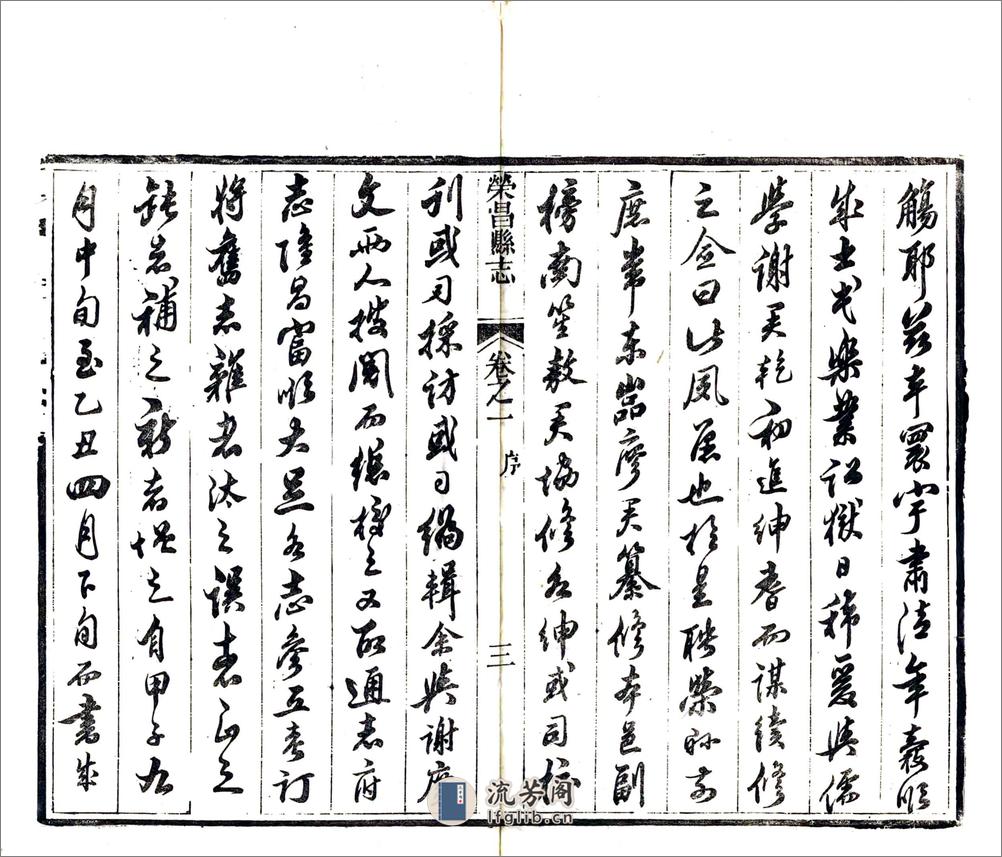 觴耶茲幸寰宇肅清年穀順
成士民樂業訟獄日稀爰與儒
學謝君乾初進紳耆而謀續修
之僉曰此風厚也於是聘榮
庶常東喦廖君纂修本邑副
榜南笙敖君協修各紳或司校
刊或司採訪或司編輯余與謝廣
文兩人披閱而總核之又取通志府
志隆昌富順大足各志參互考訂
將舊志雜者汰之誤者正之
缺者補之新者增之自甲子九
月中旬至乙丑四月下旬而書成
榮昌縣志 卷之一 序 三
流芳閣
lfglib.cn